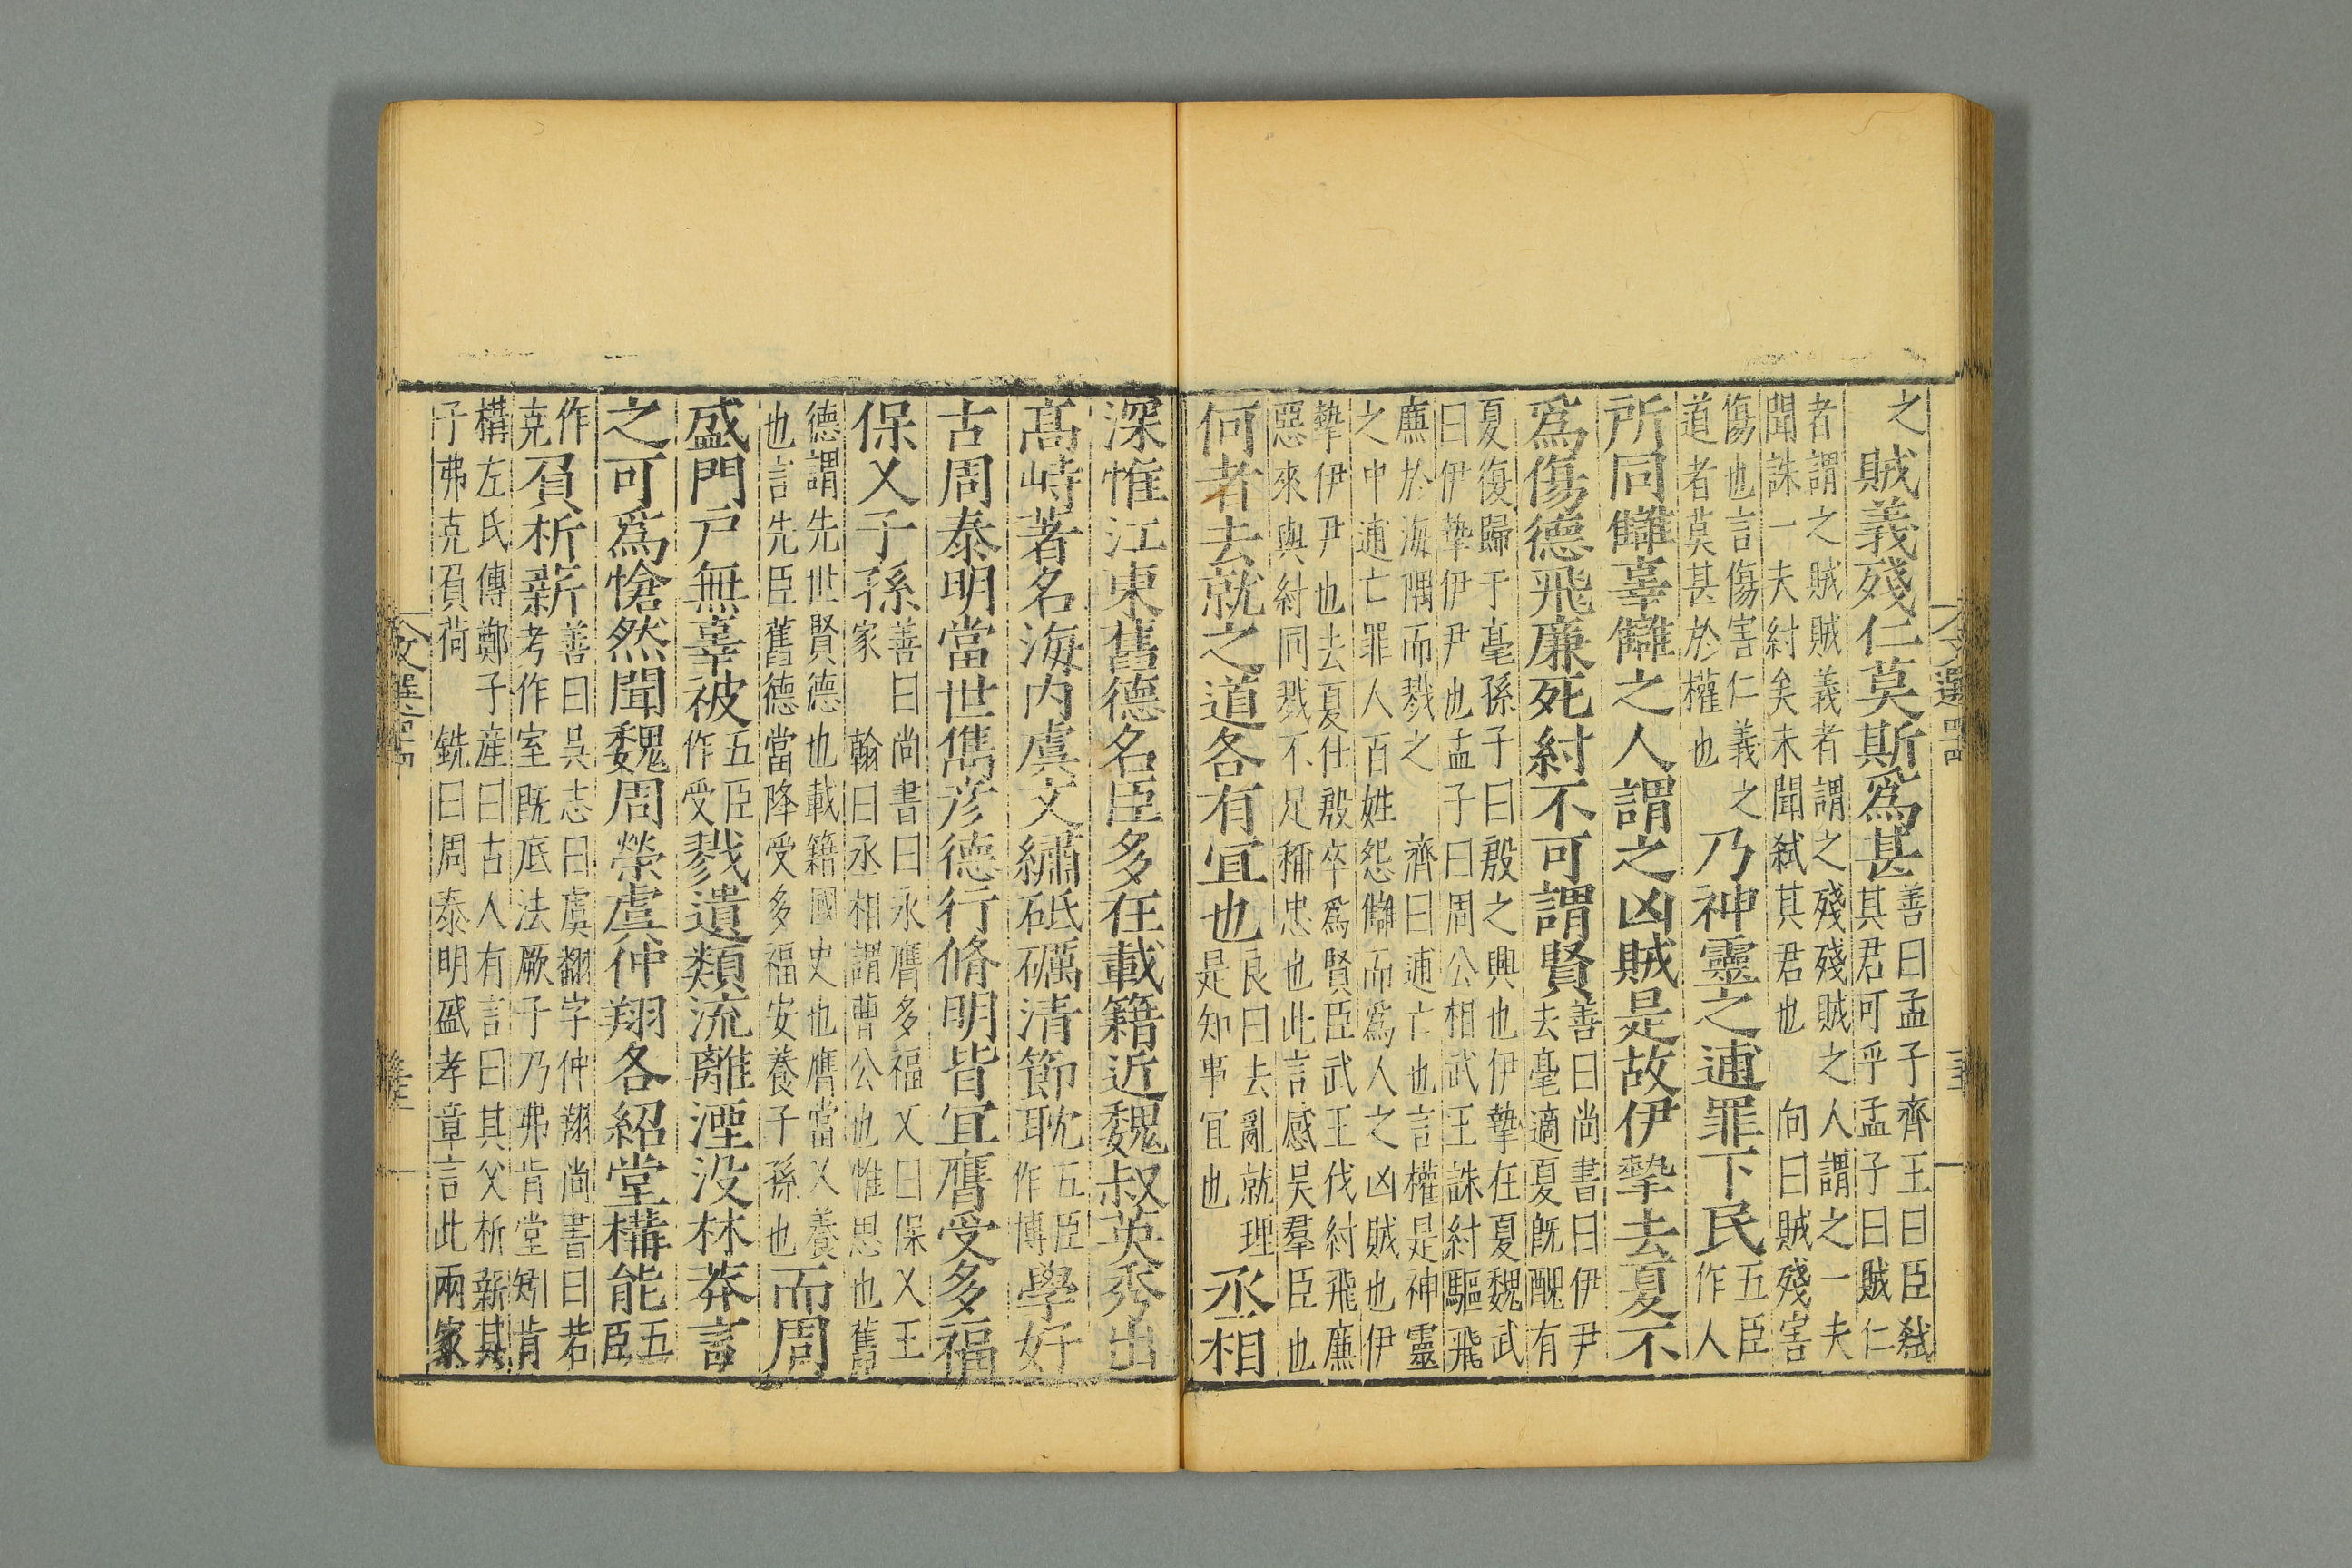 之
賊義殘仁莫斯爲甚
善曰孟子齊王曰臣弒
其君可乎孟子曰賊仁
者謂之賊賊義者謂之殘殘賊之人謂之一夫
聞誅一夫紂矣未聞弒其君也 向曰賊殘害
傷也言傷害仁義之
道者莫甚於權也
乃神靈之逋罪下民
五臣
作人
所同讎辜讎之人謂之凶賊是故伊摯去夏不
爲傷德飛廉死紂不可謂賢
善曰尚書曰伊尹
去亳適夏旣醜有
夏復歸于亳孫子曰殷之興也伊摯在夏魏武
曰伊摯伊尹也孟子曰周公相武王誅紂驅飛
廉於海隅而戮之 濟曰逋亡也言權是神靈
之中逋亡罪人百姓怨讎而爲人之凶賊也伊
摯伊尹也去夏仕殷卒爲賢臣武王伐紂飛廉
惡來與紂同戮不足稱忠也此言感吳羣臣也
何者去就之道各有宜也
良曰去亂就理
是知事宜也
丞相
深惟江東舊德名臣多在載籍近魏叔英秀出
高峙著名海內虞文繡砥礪清節耽
五臣
作博
學好
古周泰明當世雋彥德行脩明皆宜膺受多福
保乂子孫
善曰尚書曰永膺多福又曰保乂王
家 翰曰丞相謂曹公也惟思也舊
德謂先世賢德也載籍國史也膺當乂養
也言先臣舊德當降受多福安養子孫也
而周
盛門戶無辜被
五臣
作受
戮遺類流離湮沒林莽言
之可爲愴然聞魏周榮虞仲翔各紹堂構能
五
臣
作
克
負析薪
善曰吳志曰虞翻字仲翔尚書曰若
考作室旣底法厥子乃弗肯堂矧肯
構左氏傳鄭子産曰古人有言曰其父析薪其
子弗克負荷 銑曰周泰明盛孝章言此兩家